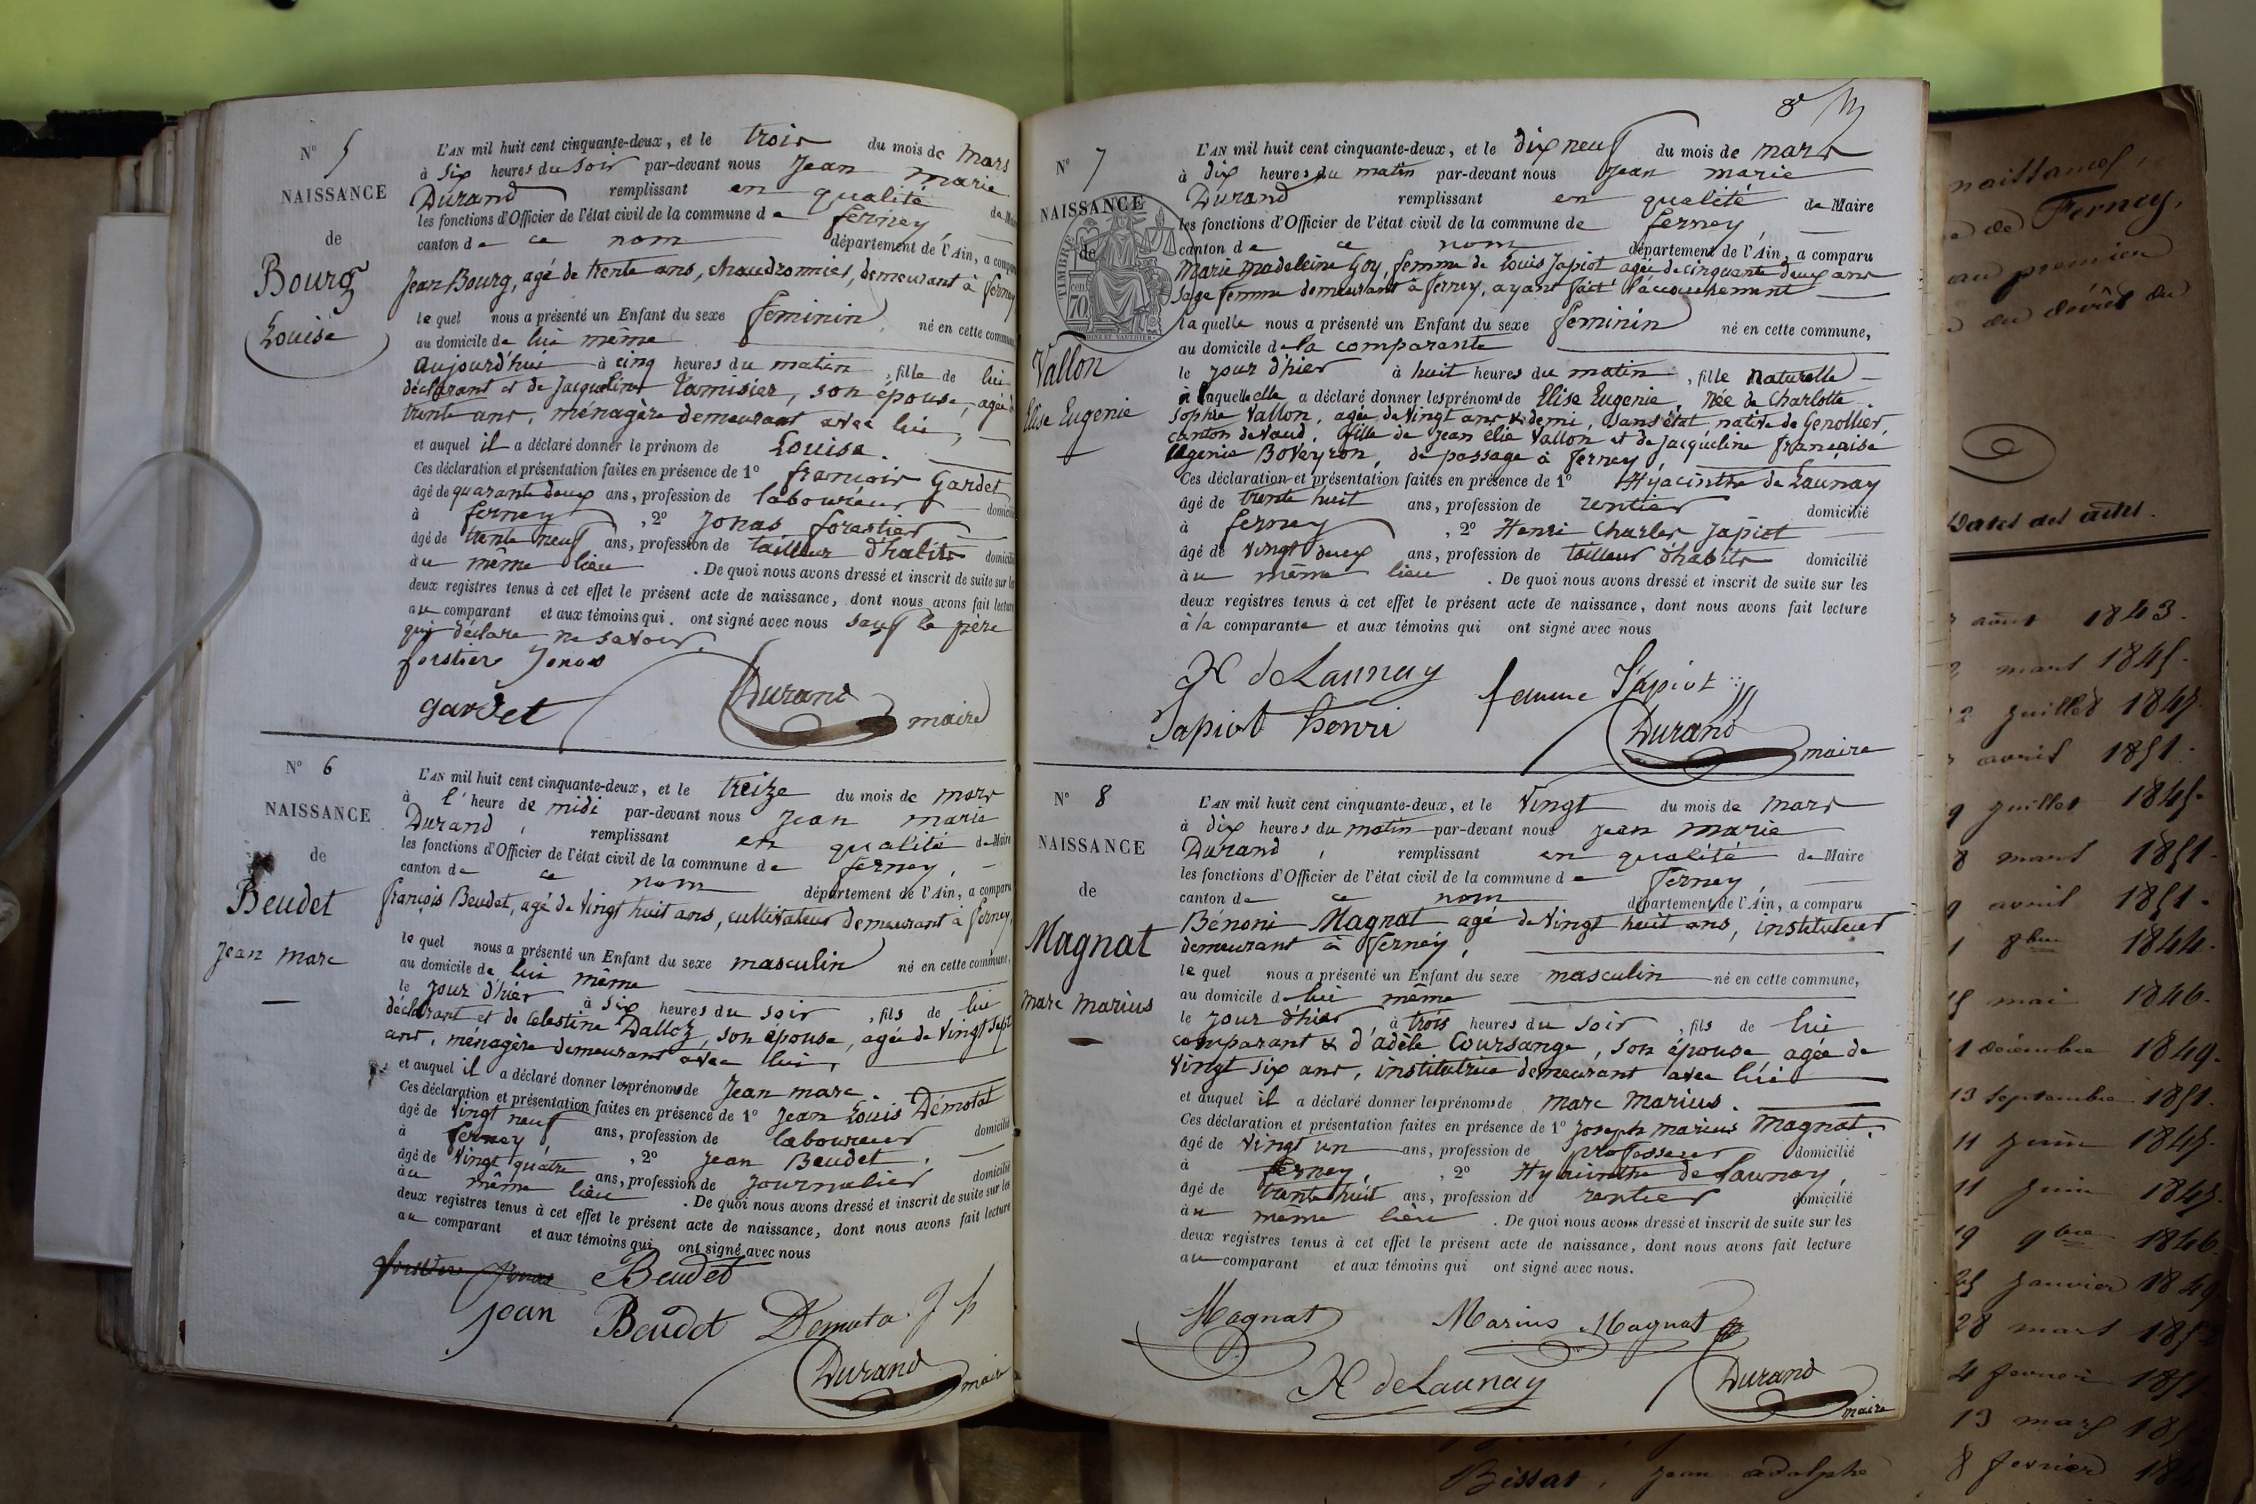 N° 5
NAISSANCE
de
Bourg
Louise
L'AN mil huit cent cinquante-deux, et le trois du mois de mars
à six heures du soir par-devant nous Jean marie
Durand remplissant en qualité de Maire
les fonctions d'Officier de l'état civil de la commune de ferney,
canton de ce nom département de l'Ain, a comparu
Jean Bourg, agé de trente ans, chaudronnier, demeurant à ferney
lequel nous a présenté un Enfant du sexe feminin, né en cette commune
au domicile de lui même
aujourd'hui à cinq heures du matin, fille de lui
déclarant et de Jacqueline Tamisier, son épouse, agée de
trente ans, ménagère demeurant avec lui,
et auquel il a déclaré donner le prénom de Louise.
Ces déclaration et présentation faites en présence de 1° françois Gardet
âgé de quarante deux ans, profession de laboureur domicilié
à ferney, 2° Jonas forestier
âgé de trente neuf ans, profession de tailleur d'habits domicilié
au même lieu. De quoi nous avons dressé et inscrit de suite sur les
deux registres tenus à cet effet le présent acte de naissance, dont nous avons fait lecture
au comparant et aux témoins qui ont signé avec nous sauf le père
qui déclare ne savoir.
forstier Jonas
gardet
Durand maire
N° 6
NAISSANCE
de
Beudet
Jean marc
L'AN mil huit cent cinquante-deux, et le treize du mois de mars
à l'heure de midi par-devant nous Jean marie
Durand, remplissant en qualité de Maire
les fonctions d'Officier de l'état civil de la commune de ferney,
canton de ce nom département de l'Ain, a comparu
françois Beudet, agé de vingt huit ans, cultivateur demeurant à ferney,
lequel nous a présenté un Enfant du sexe masculin né en cette commune,
au domicile de lui même
le jour d'hier à six heures du soir, fils de lui
déclarant et de Celestine Dalloz, son épouse, agée de vingt sept
ans, ménagère demeurant avec lui,
et auquel il a déclaré donner les prénoms de Jean marc.
Ces déclaration et présentation faites en présence de 1° Jean Louis Démotat
âgé de vingt neuf ans, profession de laboureur domicilié
à ferney, 2° Jean Beudet,
âgé de vingt quatre ans, profession de journalier domicilié
au même lieu. De quoi nous avons dressé et inscrit de suite sur les
deux registres tenus à cet effet le présent acte de naissance, dont nous avons fait lecture
au comparant et aux témoins qui ont signé avec nous
forstier Jonas Beudet
jean Beudet Demota
Durand maire
8e
N° 7
NAISSANCE
de
TIMBRE
70
Vallon
Elise Eugenie
L'AN mil huit cent cinquante-deux, et le dix neuf du mois de mars
à dix heures du matin par-devant nous Jean marie
Durand remplissant en qualité de Maire
les fonctions d'Officier de l'état civil de la commune de ferney,
canton de ce nom département de l'Ain, a comparu
Marie Madeleine Goy, femme de Louis Japiot agée de cinquante deux ans
sage femme demeurant à ferney, ayant fait l'accouchement
laquelle nous a présenté un Enfant du sexe feminin né en cette commune,
au domicile de la comparante
le jour d'hier à huit heures du matin, fille naturelle
à laquelle elle a déclaré donner les prénoms de Elise Eugenie, Née de Charlotte
Sophie Vallon, agée de vingt ans & demi, sans état, native de Genollier,
canton de Vaud, fille de Jean élie Vallon et de Jacquéline françoise
ugenie Boveyron, de passage à ferney
Ces déclaration et présentation faites en présence de 1° Hyacinthe de Launay
âgé de trente huit ans, profession de rentier domicilié
à ferney, 2° Henri Charles Japiot
âgé de vingt deux ans, profession de tailleur d'habits domicilié
au même lieu. De quoi nous avons dressé et inscrit de suite sur les
deux registres tenus à cet effet le présent acte de naissance, dont nous avons fait lecture
à la comparante et aux témoins qui ont signé avec nous
H de Launay
femme Japiot
Japiot henri
Durand maire
N° 8
NAISSANCE
de
Magnat
marc marius
L'AN mil huit cent cinquante-deux, et le vingt du mois de mars
à dix heures du matin par-devant nous Jean marie
Durand, remplissant en qualité de Maire
les fonctions d'Officier de l'état civil de la commune de ferney,
canton de ce nom département de l'Ain, a comparu
Bénoni Magnat agé de vingt huit ans, instituteur
demeurant à ferney,
lequel nous a présenté un Enfant du sexe masculin né en cette commune,
au domicile de lui même
le jour d'hier, à trois heures du soir, fils de lui
comparant & d'adèle Coursange, son épouse agée de
vingt six ans, institutrice demeurant avec lui
et auquel il a déclaré donner les prénoms de marc marius.
Ces déclaration et présentation faites en présence de 1° Joseph marius Magnat,
âgé de vingt un ans, profession de professeur domicilié
à ferney, 2° Hyacinthe de Launay,
âgé de trente huit ans, profession de rentier domicilié
au même lieu. De quoi nous avons dressé et inscrit de suite sur les
deux registres tenus à cet effet le présent acte de naissance, dont nous avons fait lecture
au comparant et aux témoins qui ont signé avec nous.
Magnat Marius Magnat
H de Launay
Durand maire
naissances,
de Ferney,
au premier
du décès du
Dates des actes.
août 1843.
mars 1845.
2 juillet 1845.
avril 1851.
9 juillet 1845.
8 mars 1851.
9 avril 1851.
1 8bre 1844.
15 mai 1846.
1 décembre 1849.
13 septembre 1851.
11 juin 1845.
11 juin 1845.
19 9bre 1846.
25 janvier 1849
28 mars 1852
4 fevrier 1851
13 mars 185
8 fevrier 18
Bessat, Jean adolphe